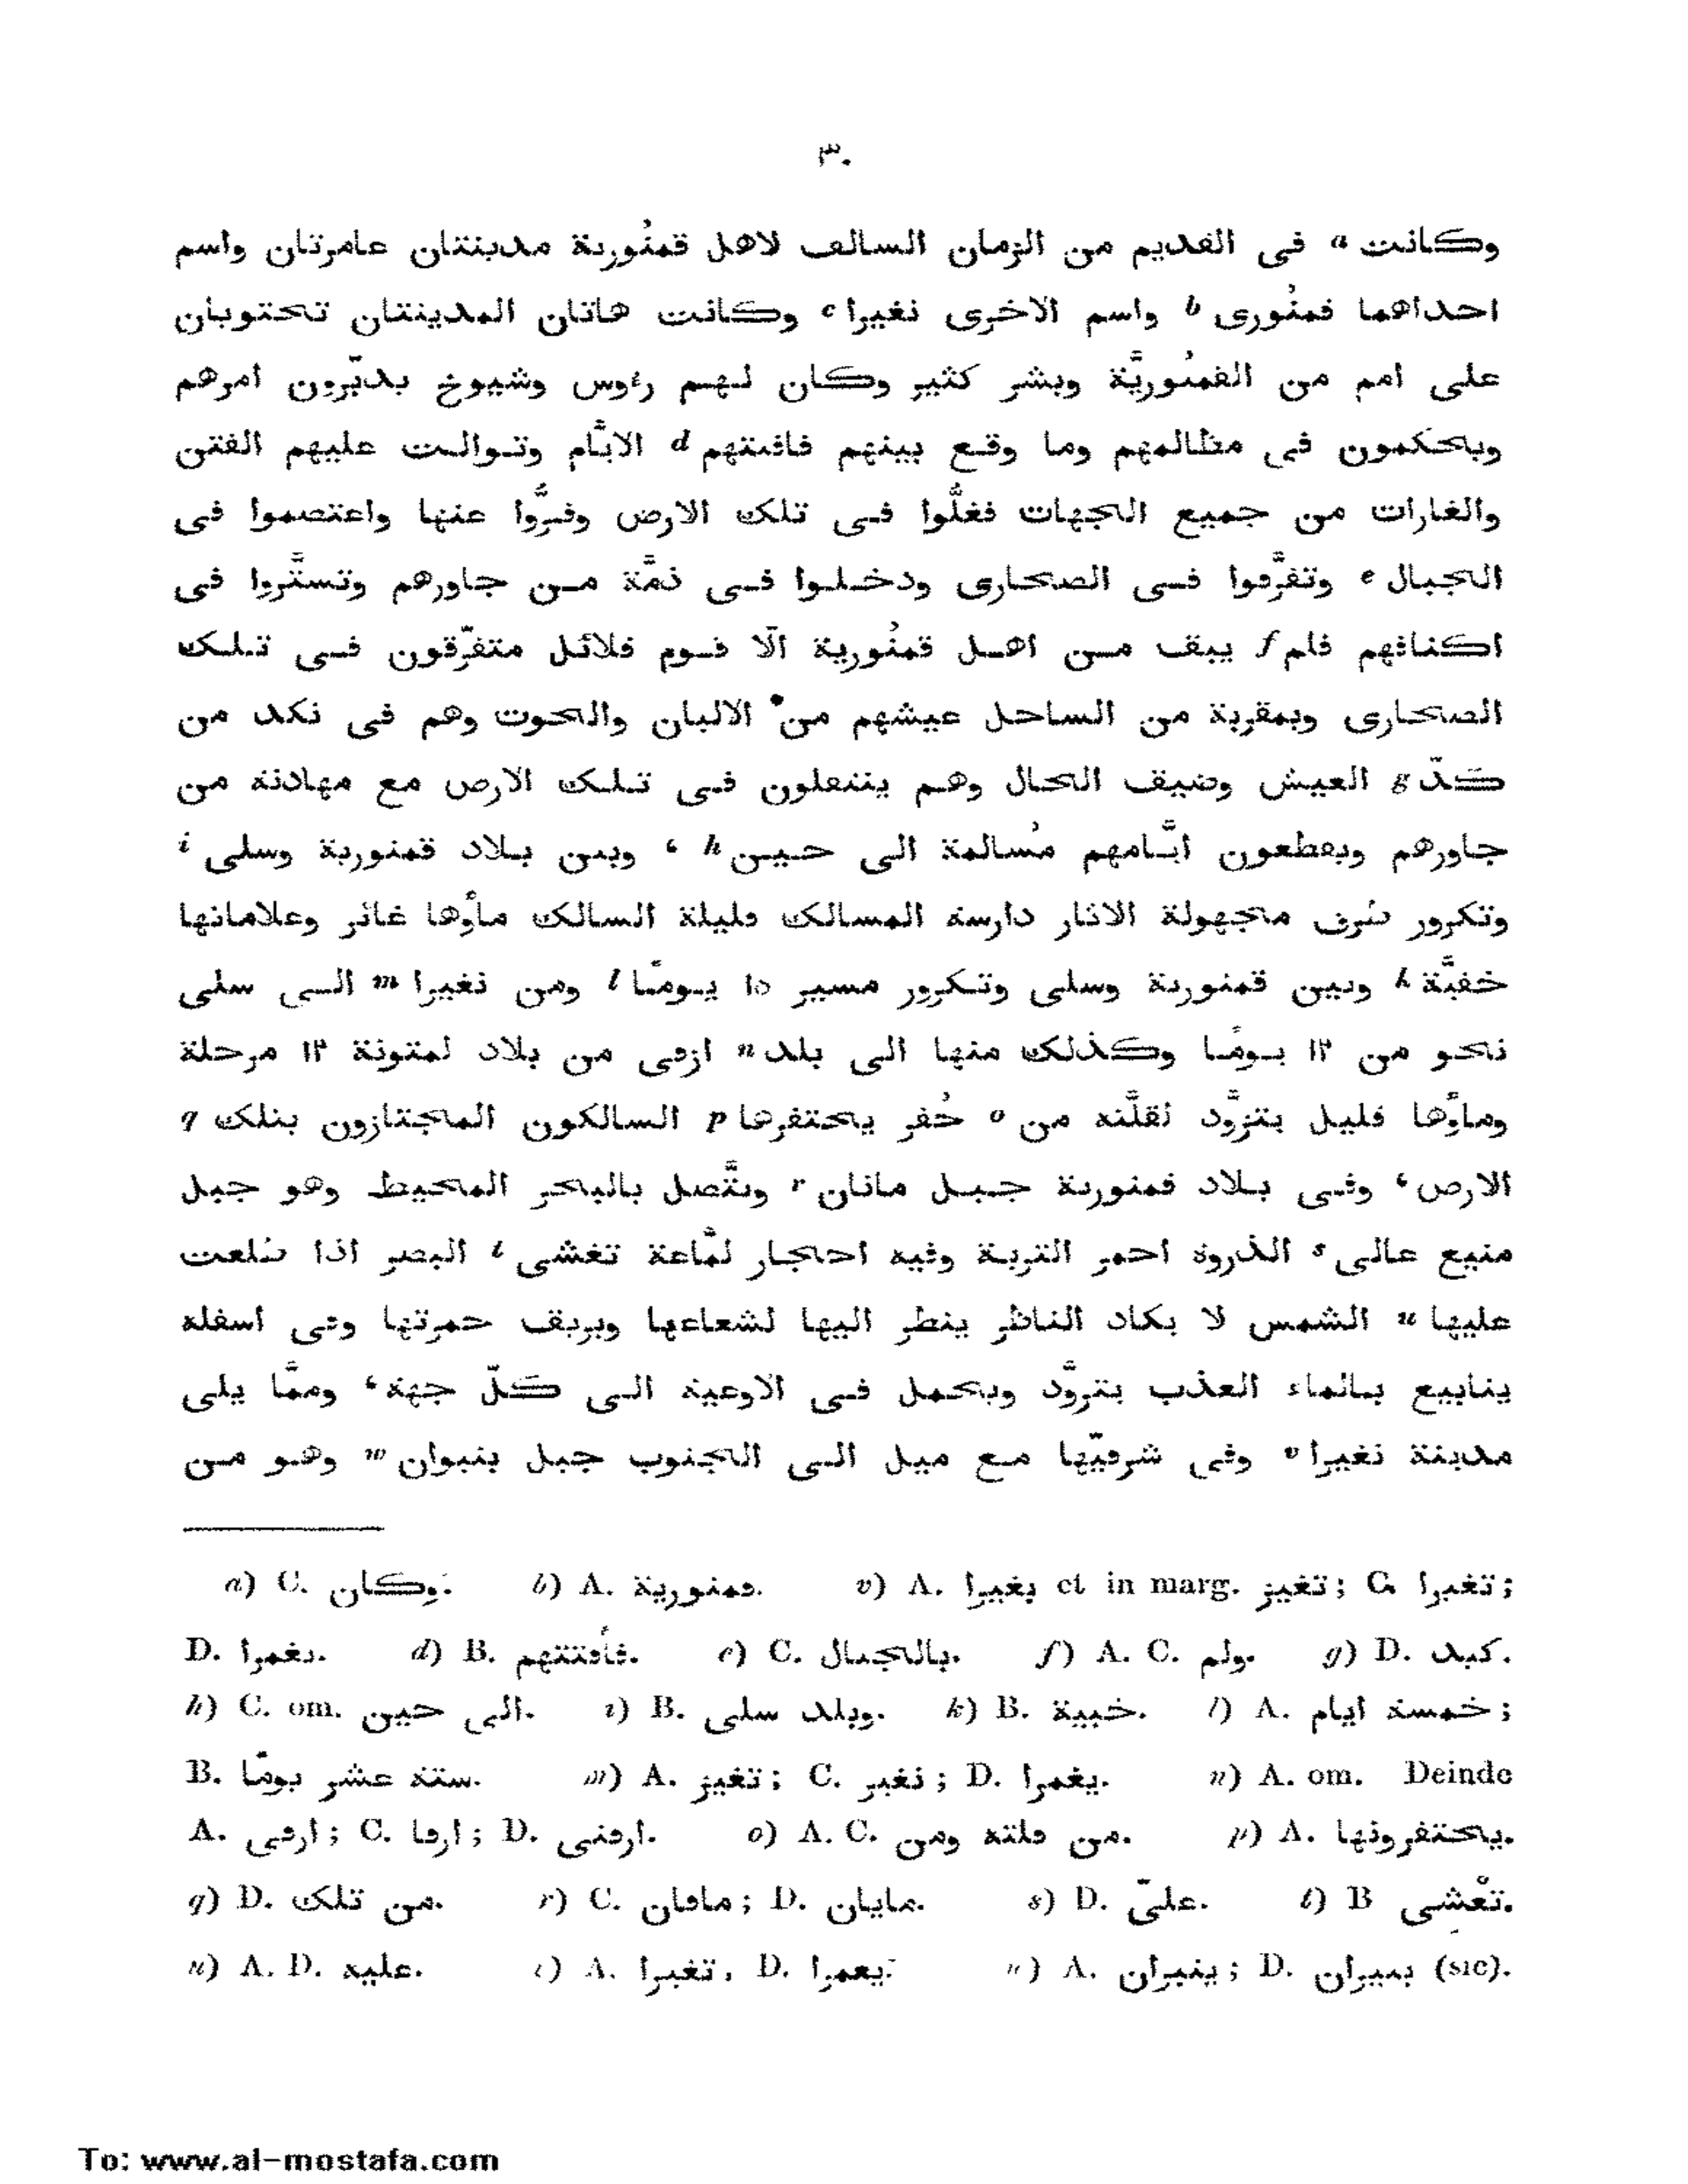 ٣٠
وكانت a فى القديم من الزمان السالف لاهل قمنُورية مدينتان عامرتان واسم
احداهما قمنُورى b واسم الاخرى نغيرا c وكانت هاتان المدينتان تحتويان
على امم من القمنُوريَّة وبشر كثير وكان لهم رءوس وشيوخ يدبّرون امرهم
ويحكمون فى مظالمهم وما وقع بينهم فافنتهم d الايَّام وتوالت عليهم الفتن
والغارات من جميع الجهات فقلُّوا فى تلك الارض وفرُّوا عنها واعتصموا فى
الجبال e وتفرَّقوا فى الصحارى ودخلوا فى ذمَّة من جاورهم وتستَّروا فى
اكنافهم فلم f يبق من اهل قمنُورية الّا قوم قلائل متفرّقون فى تلك
الصحارى وبمقربة من الساحل عيشهم من الالبان والحوت وهم فى نكد من
كدّ g العيش وضيق الحال وهم يتنقلون فى تلك الارض مع مهادنة من
جاورهم ويقطعون ايَّامهم مُسالمة الى حين h ، وبين بلاد قمنورية وسلى i
وتكرور طرق مجهولة الاثار دارسة المسالك قليلة السالك ماؤها غائر وعلاماتها
خفيَّة k وبين قمنورية وسلى وتكرور مسير ١٥ يومًا l ومن نغيرا m الى سلى
نحو من ١٢ يومًا وكذلك منها الى بلد n ازقى من بلاد لمتونة ١٢ مرحلة
وماؤها قليل يتزوَّد لقلَّته من o حُفر يحتفرها p السالكون المجتازون بتلك q
الارض ، وفى بلاد قمنورية جبل مانان r ويتَّصل بالبحر المحيط وهو جبل
منيع عالى s الذروة احمر التربة وفيه احجار لمَّاعة تغشى t البصر اذا طلعت
عليها u الشمس لا يكاد الناظر ينظر اليها لشعاعها وبريق حمرتها وفى اسفله
ينابيع بالماء العذب يتزوَّد ويحمل فى الاوعية الى كلّ جهة ، وممَّا يلى
مدينة نغيرا v وفى شرقيّها مع ميل الى الجنوب جبل بنبوان w وهو من
a) C. وكان. b) A. قمنورية. c) A. بغيرا et in marg. تغيز; C. تغبرا;
D. يغمرا. d) B. فأفتتهم. e) C. بالجبال. f) A. C. ولم. g) D. كبد.
h) C. om. الى حين. i) B. وبلد سلى. k) B. خبية. l) A. خمسة ايام;
B. ستة عشر يومًا. m) A. تغيز; C. نغبر; D. يغمرا. n) A. om. Deinde
A. ارقى; C. ارفا; D. ارفنى. o) A. C. من قلته ومن. p) A. يحتفرونها.
q) D. من تلك. r) C. مافان; D. مايان. s) D. علىّ. t) B تعْشى.
u) A. D. عليه. v) A. تغبرا, D. يعمرا. w) A. ينبران; D. بسيران (sic).
To: www.al-mostafa.com